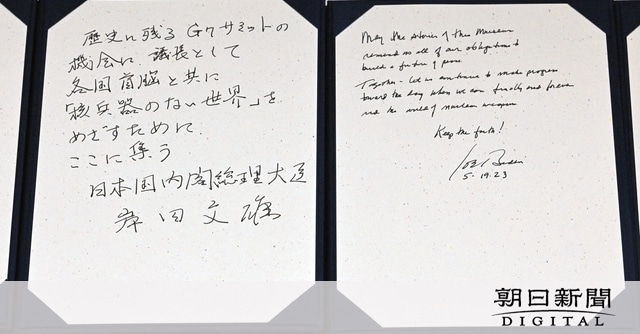 歴史に残るG7サミットの
機会に議長として
各国首脳と共に
「核兵器のない世界」を
めざすために
ここに集う
日本国内閣総理大臣
岸田文雄
May the stories of this Museum
remind us all of our obligations to
build a future of peace.
Together - let us continue to make progress
toward the day when we can finally and forever
rid the world of nuclear weapons.
Keep the faith!
Joe Biden
5-19-23
朝日新聞
DIGITAL